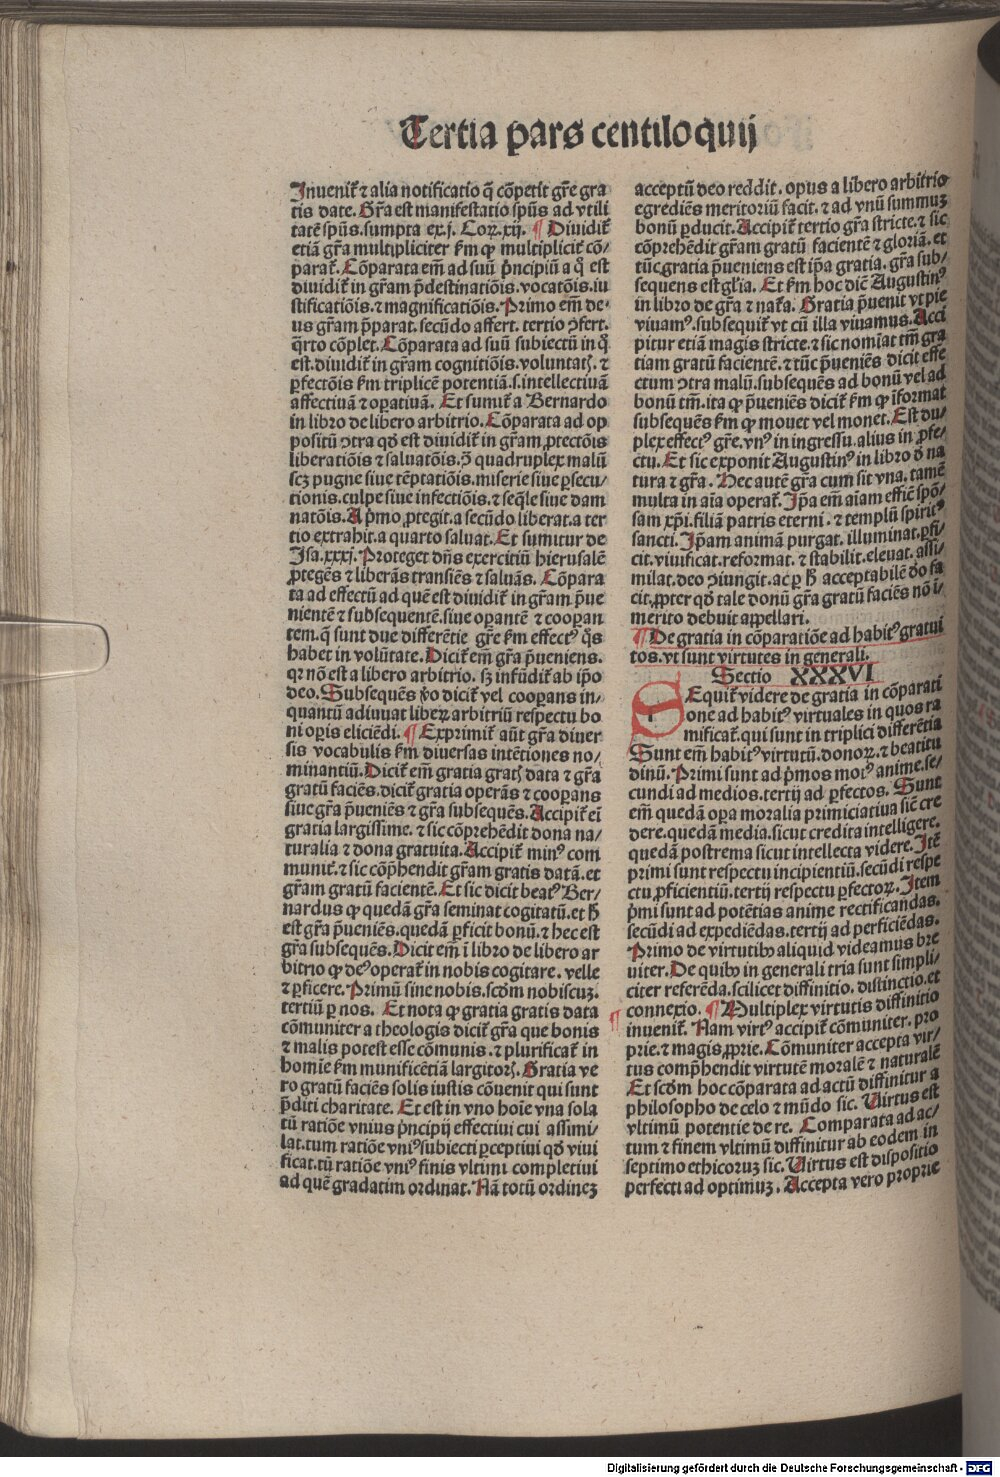 Tertia pars centiloquij
Inuenit᷑ ⁊ alia notificatio q̃ cõpetit gr̃e gra
tis date. Gr̃a est manifestatio spũs ad vtili
tatẽ spũs. sumpta ex .j. Coꝝ. xij. ¶ Diuidit᷑
etiã gr̃a multipliciter ẜm ꝙ multiplicit᷑ cõ/
parat᷑. Cõparata em̃ ad suũ pͥncipiũ a q̃ est
diuidit᷑ in gr̃am p̃destinatiõis. vocatõis. iu
stificatiõis. ⁊ magnificatiõis. Primo em̃ de⸗
us gr̃am p̃parat. secũdo affert. tertio ꝯfert.
q̃rto cõplet. Cõparata ad suũ subiectũ in q̃
est. diuidit᷑ in gr̃am cognitiõis. voluntatꝭ. ⁊
ꝑfectõis ẜm triplicẽ potentiã .s. intellectiuã
affectiuã ⁊ oꝑatiuã. Et sumit᷑ a Bernardo
in libro de libero arbitrio. Cõparata ad op
positũ ꝯtra qđ est diuidit᷑ in gr̃am ꝓtectõis
liberatiõis ⁊ saluatõis. ꝯ̃ quadruplex malũ
scꝫ pugne siue tẽptatiõis. miserie siue ꝑsecu/
tionis. culpe siue infectiõis. ⁊ seq̃le siue dam
natõis. A pͥmo ꝓtegit. a secũdo liberat. a ter
tio extrahit. a quarto saluat. Et sumitur de
Isa. xxxj. Proteget dñs exercitiũ hierusalẽ
ꝓtegẽs ⁊ liberãs transiẽs ⁊ saluãs. Cõpara
ta ad effectũ ad quẽ est diuidit᷑ in gr̃am p̃ue
nientẽ ⁊ subsequentẽ. siue oꝑantẽ ⁊ cooꝑan
tem. q̃ sunt due differẽtie gr̃e ẜm effectꝰ q̃s
habet in volũtate. Dicit᷑ em̃ gr̃a p̃ueniens.
qꝛ nõ est a libero arbitrio. sꝫ infũdit᷑ ab ipo
deo. Subsequẽs ṽo dicit᷑ vel cooꝑans in⸗
quantũ adiuuat libeꝝ arbitriũ respectu bo
ni oꝑis eliciẽdi. ¶ Exprimit᷑ aũt gr̃a diuer
sis vocabulis ẜm diuersas intẽtiones no/
minantiũ. Dicit᷑ em̃ gratia gratꝭ data ⁊ gr̃a
gratũ faciẽs. dicit᷑ gratia operãs ⁊ cooꝑans
siue gr̃a p̃ueniẽs ⁊ gr̃a subsequẽs. Accipit᷑ eĩ
gratia largissime. ⁊ sic cõprehẽdit dona na/
turalia ⁊ dona gratuita. Accipit᷑ minꝰ com
munit᷑. ⁊ sic cõp̃hendit gr̃am gratis datã. et
gr̃am gratũ facientẽ. Et sic dicit beatꝰ Ber/
nardus ꝙ quedã gr̃a seminat cogitatũ. et ħ
est gr̃a p̃ueniẽs. quedã ꝑficit bonũ. ⁊ hec est
gr̃a subsequẽs. Dicit em̃ ĩ libro de libero ar
bitrio ꝙ deꝰ operat᷑ in nobis cogitare. velle
⁊ ꝑficere. Primũ sine nobis. scđm nobiscuꝫ.
tertiũ ꝑ nos. Et nota ꝙ gratia gratis data
cõmuniter a theologis dicit᷑ gr̃a que bonis
⁊ malis potest esse cõmunis. ⁊ plurificat᷑ in
homĩe ẜm munificẽtiã largitorꝭ. Gratia ve
ro gratũ faciẽs solis iustis cõuenit qui sunt
p̃diti charitate. Et est in vno hoĩe vna sola
tũ ratiõe vnius pͥncipij effectiui cui assimi/
lat. tum ratiõe vniꝰ subiecti ꝑceptiui qđ viui
ficat. tũ ratiõe vniꝰ finis vltimi completiui
ad quẽ gradatim ordinat. Nã totũ ordineꝫ
acceptũ deo reddit. opus a libero arbitrio
egrediẽs meritoriũ facit. ⁊ ad vnũ summuꝫ
bonũ ꝑducit. Accipit᷑ tertio gr̃a stricte. ⁊ sic
cõprehẽdit gr̃am gratũ facientẽ ⁊ gloriã. et
tũc gratia p̃ueniens est ip̃a gratia. gr̃a sub/
sequens est gl̃ia. Et ẜm hoc diẽ Augustinꝰ
in libro de gr̃a ⁊ nat᷑a. Gratia p̃uenit vt pie
viuamꝰ. subsequit᷑ vt cũ illa viuamus. Acci
pitur etiã magis stricte. ⁊ sic nomĩat tm̃ gra
tiam gratũ facientẽ. ⁊ tũc p̃ueniẽs dicit effe
ctum ꝯtra malũ. subsequẽs ad bonũ vel ad
bonũ tm̃. ita ꝙ p̃ueniẽs dicit᷑ ẜm ꝙ ĩformat
subsequẽs ẜm ꝙ mouet vel monet. Est du/
plex effectꝰ gr̃e. vnꝰ in ingressu. alius in ꝓfe/
ctu. Et sic exponit Augustinꝰ in libro đ na
tura ⁊ gr̃a. Hec autẽ gr̃a cum sit vna. tamẽ
multa in aĩa operat᷑. Ip̃a em̃ aĩam effiẽ spõ/
sam xp̃i. filiã patris eterni. ⁊ templũ spiritꝰ
sancti. Ip̃am animã purgat. illuminat. ꝑfi/
cit. viuificat. reformat. ⁊ stabilit. eleuat. assi/
milat. deo ꝯiungit. ac ꝑ ħ acceptabilẽ đo fa
cit. ꝓpter qđ tale donũ gr̃a gratũ faciẽs nõ ĩ/
merito debuit appellari.
¶ De gratia in cõparatiõe ad habitꝰ gratui
tos. vt sunt virtutes in generali.
Sectio XXXVI
SEquit᷑ videre de gratia in cõparati
one ad habitꝰ virtuales in quos ra
mificat᷑. qui sunt in triplici differẽtia
Sunt em̃ habitꝰ virtutũ. donoꝝ. ⁊ beatitu
dinũ. Primi sunt ad pͥmos motꝰ anime. se/
cundi ad medios. tertij ad ꝑfectos. Sunt
em̃ quedã oꝑa moralia primiciatiua siẽ cre
dere. quedã media. sicut credita intelligere.
quedã postrema sicut intellecta videre. Itẽ
primi sunt respectu incipientiũ. secũdi respe
ctu ꝓficientiũ. tertij respectu ꝑfectoꝝ. Item
pͥmi sunt ad potẽtias anime rectificandas.
secũdi ad expediẽdas. tertij ad perficiẽdas.
Primo de virtutibꝰ aliquid videamus bre
uiter. De quibꝰ in generali tria sunt simpli/
citer referẽda. scilicet diffinitio. distinctio. et
connexio. ¶ Multiplex virtutis diffinitio
inuenit᷑. Nam virtꝰ accipit᷑ cõmuniter. pro
prie. ⁊ magis ꝓprie. Cõmuniter accepta vir/
tus comp̃hendit virtutẽ moralẽ ⁊ naturalẽ
Et scđm hoc cõparata ad actũ diffinitur a
philosopho de celo ⁊ mũdo sic. Uirtus est
vltimũ potentie de re. Comparata ad ac/
tum ⁊ finem vltimũ diffinitur ab eodem in
septimo ethicoruꝫ sic. Uirtus est dispositio
perfecti ad optimuꝫ. Accepta vero proprie
Digitalisierung gefördert durch die Deutsche Forschungsgemeinschaft - DFG